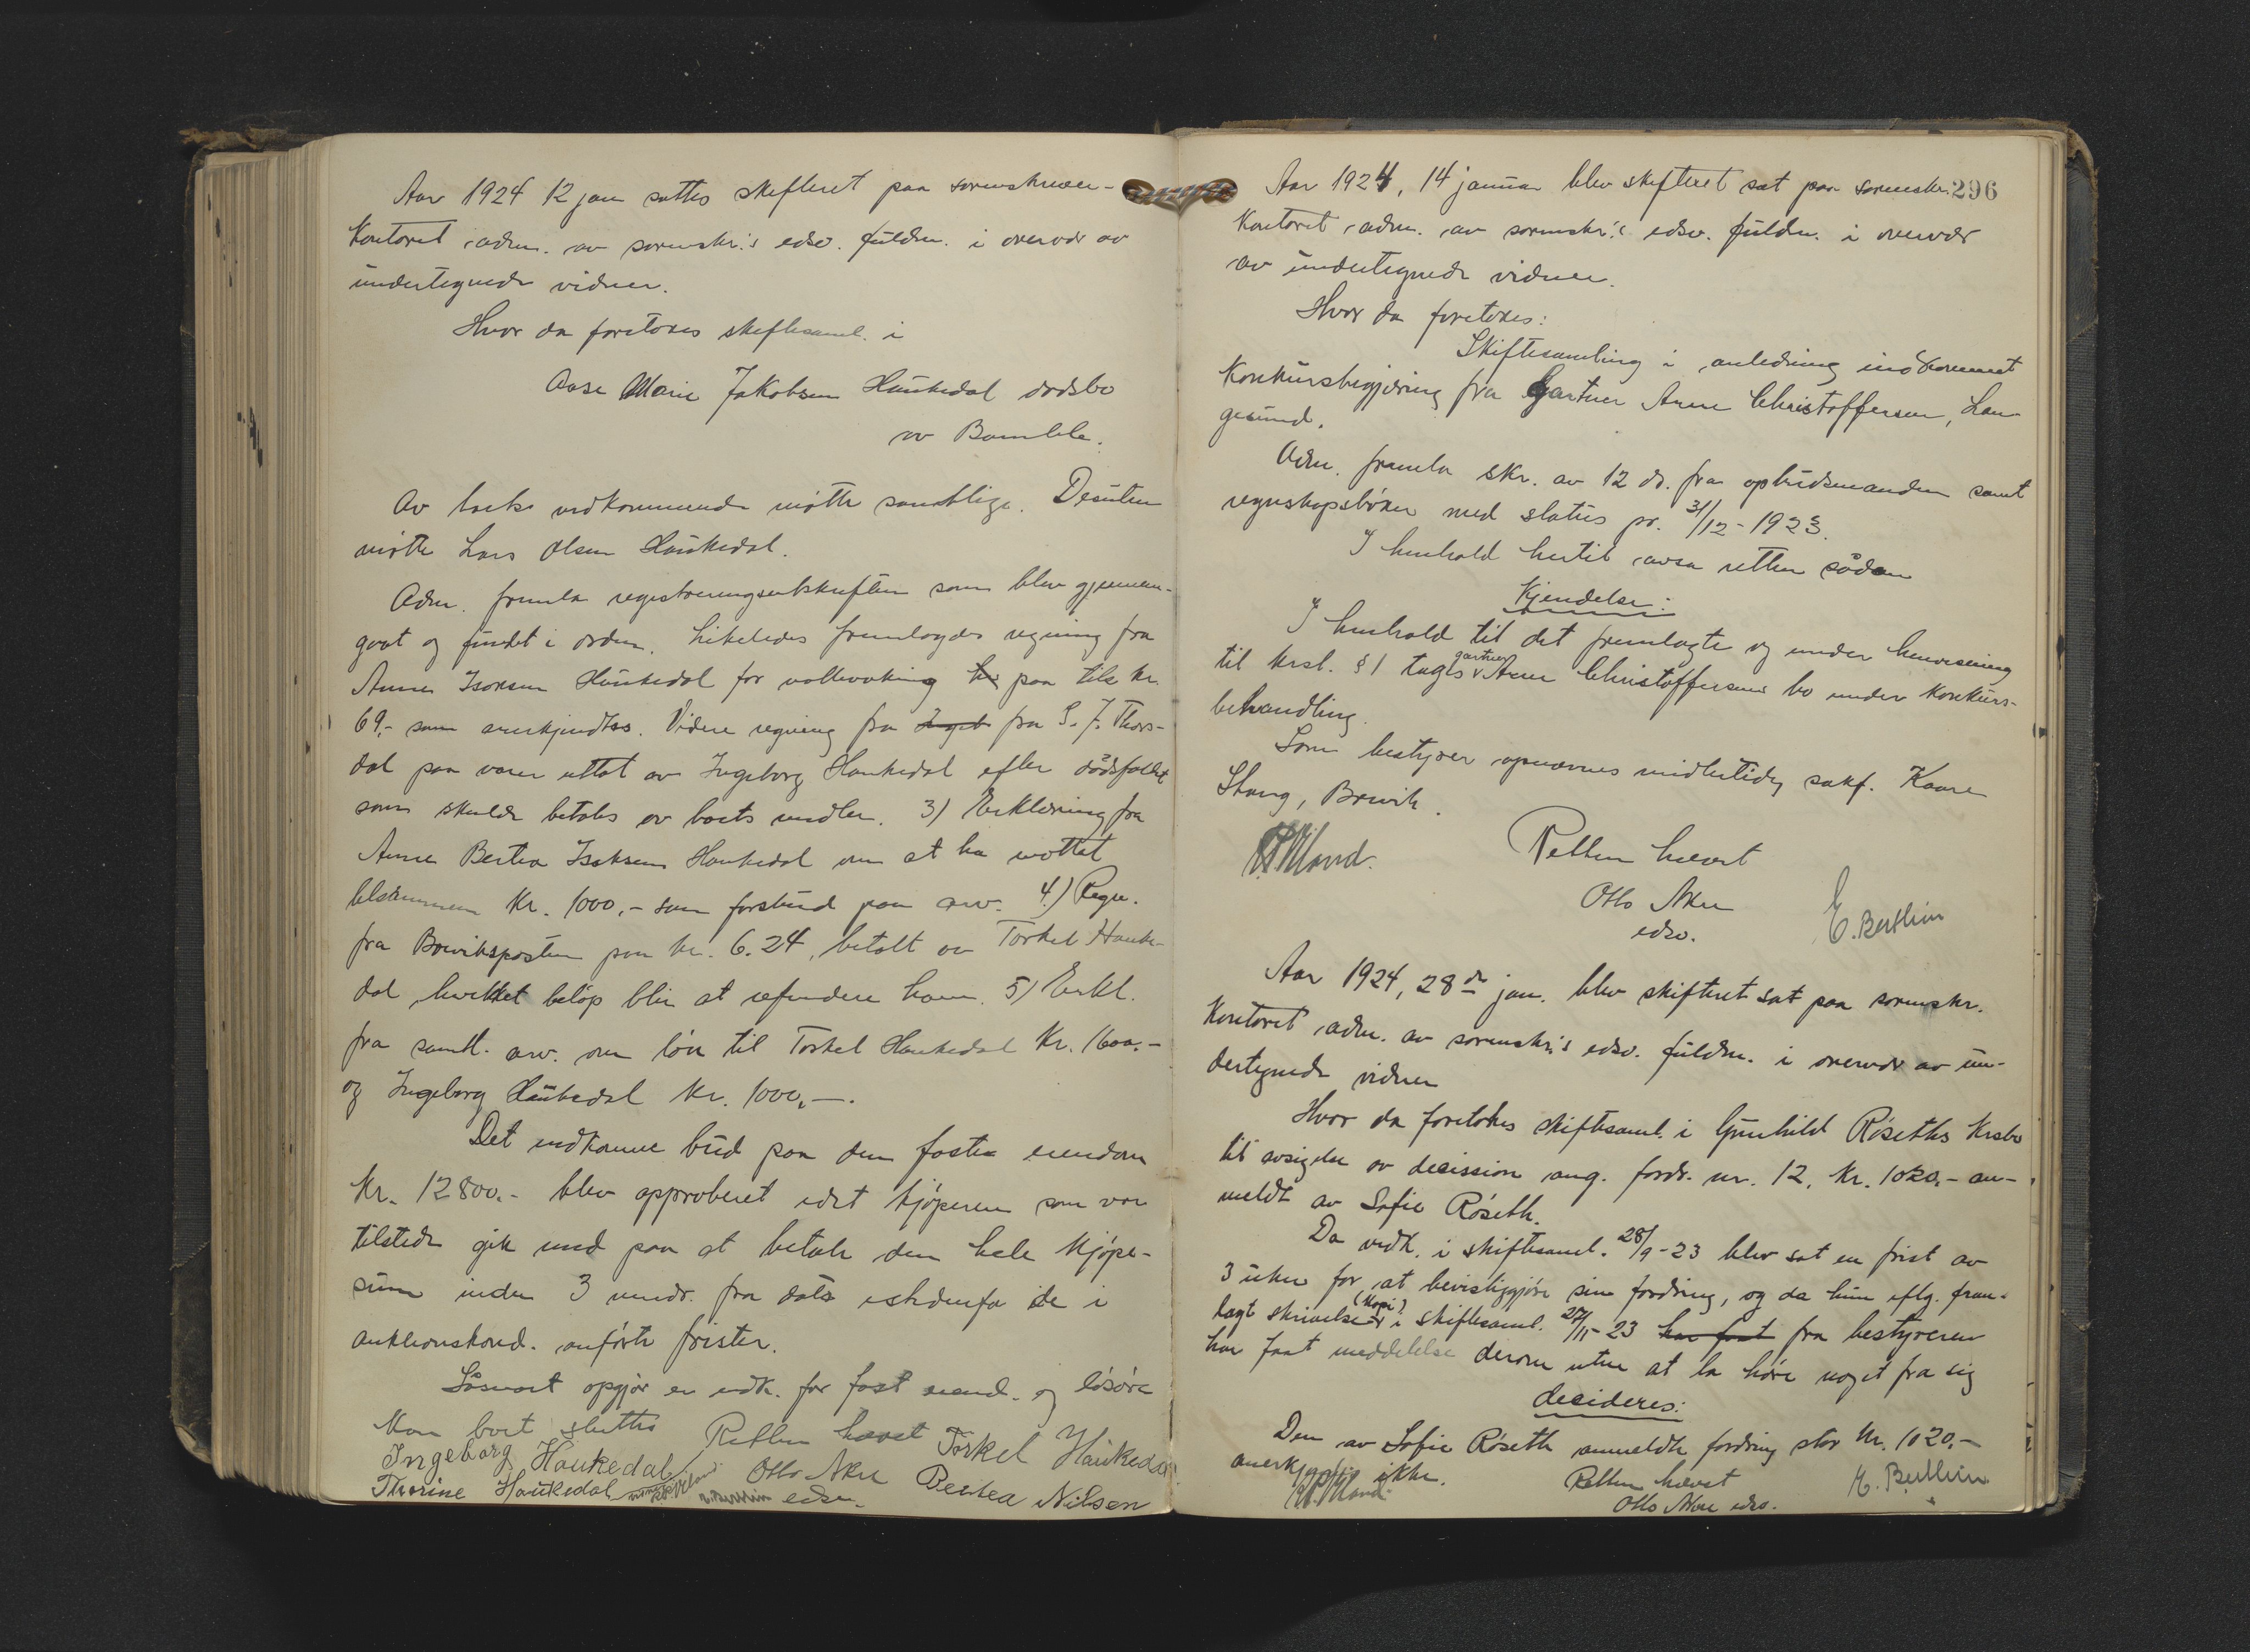 Aar 1924 12 jan sattes skifteret paa sorenskriver-
kontoret adm. av sorenskr.'s edsv. fuldm. i overvær av
undertegnede vidner.
Hvor da foretoges skiftesaml. i
Aase Marie Jakobsen Haukedal dødsbo
av Bamble.
Av boets vedkommende møtte samtlige. Desuten
møtte Lars Olsen Haukedal.
Adm. fremla registreringsutskriften som blev gjennem-
gaat og fundet i orden. Likeledes fremlagdes regning fra
Anne Isaksen Haukedal for paa tils kr.
69,- som anerkjendtes. Videre regning fra Ingeb fra S. J. Thors-
dal paa varer uttat av Ingeborg Haukedal efter dødsfaldet
som skulde betales av boets midler. 3) Erklæring fra
Anne Bertea Isaksen Haukedal om at ha mottat
tilsammen Kr. 1000,- som forskud paa arv. 4) Regn.
fra Brevikposten paa kr. 6.24, betalt av Torkel Hauke-
dal hvilket beløp blir at refundere ham. 5) Erkl.
fra samtl. arv. om løn til Torkel Haukedal Kr. 1600,-
og Ingeborg Haukedal Kr. 1000,-.
Det indkomne bud paa den faste eiendom
Kr. 12800.- blev approberet idet kjøperen som var
tilstede gik med paa at betale den hele kjøpe-
sum inden 3 mndr. fra dato istedenfor de i
auktionskond. anførte frister.
Såsnart opgjør er indk. for fast eiend. og løsøre
kan boet sluttes Retten hævet Torkel Haukedal
Ingeborg Haukedal Otto Aker Bertea Nilsen
Thorine Haukedal E. Berthin edsv.
Aar 1924, 14 januar blev skifteret sat paa sorenskr. 296
kontoret adm. av sorenskr.'s edsv. fuldm. i overvær
av undertegnede vidner.
Hvor da foretokes:
Skiftesamling i anledning indkommet
konkursbegjæring fra Gartner Arne Christoffersen, Lan-
gesund.
Adm. fremla skr. av 12 ds. fra opbudsmanden samt
regnskapsbøker med status pr. 31/12-1923.
I henhold hertil avsa retten sådan
Kjendelse:
I henhold til det fremlagte og under henvisning
til krsl. § 1 tages gartner Arne Christoffersens bo under konkurs-
behandling.
Som bestyrer opnævnes midlertidig sakf. Kaare
Stang, Brevik.
Retten hævet
Otto Aker
edsv.
E. Berthin
Aar 1924, 28de jan. blev skifteret sat paa sorenskr.
kontoret adm. av sorenskr.'s edsv. fuldm. i overvær av un-
dertegnede vidner
Hvor da foretokes skiftesaml. i Gunhild Røseths krsbo
til avsigelse av decission ang. fordr. nr. 12, kr. 1020,- an-
meldt av Sofie Røseth.
Da vedk. i skiftesaml. 28/9-23 blev sat en frist av
3 uker for at bevisliggjøre sin fordring, og da hun iflg. frem-
lagt skrivelse (kopi) i skiftesaml. 27/11-23 har faat fra bestyreren
har faat meddelelse derom uten at la høre noget fra sig
decideres:
Den av Sofie Røseth anmeldte fordring stor kr. 1020,-
anerkjendes ikke.
Retten hævet
Otto Aker edsv.
E. Berthin